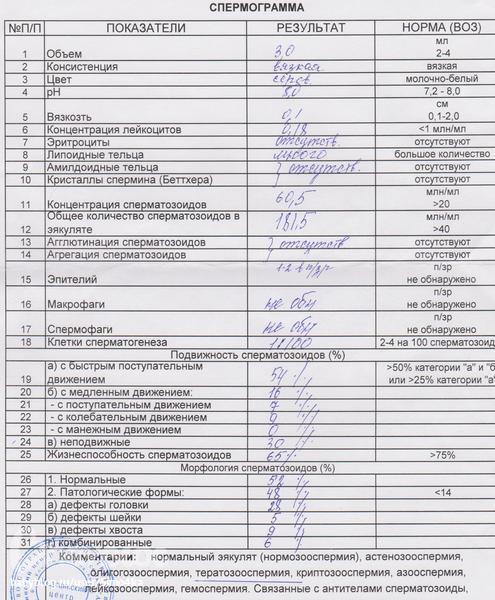 СПЕРМОГРАММА
№П/П ПОКАЗАТЕЛИ РЕЗУЛЬТАТ НОРМА (ВОЗ)
1 Объем 3,0 мл 2-4
2 Консистенция вязкая вязкая
3 Цвет молочно-белый
4 pH 8,0 7,2 - 8,0
5 Вязкозть 0,1 см 0,1-2,0
6 Концентрация лейкоцитов 0,18 <1 млн/мл
7 Эритроциты отсутств. отсутствуют
8 Липоидные тельца много большое количество
9 Амилдоидные тельца отсутств. отсутствуют
10 Кристаллы спермина (Беттхера) отсутствуют
11 Концентрация сперматозоидов 60,5 млн/мл >20
12 Общее количество сперматозоидов в эякуляте 181,5 млн/мл >40
13 Агглютинация сперматозоидов отсутств отсутствуют
14 Агрегация сперматозоидов отсутствуют
15 Эпителий 1-2 в п/зр п/зр не обнаружено
16 Макрофаги не обн п/зр не обнаружено
17 Спермофаги не обн п/зр не обнаружено
18 Клетки сперматогенеза 2-4 на 100 сперматозоид
Подвижность сперматозоидов (%)
19 а) с быстрым поступательным движением 54 % >50% категории "а" и "б или >25% категории "а"
20 б) с медленным движением: 16 %
21 - с поступательным движением 7 %
22 - с колебательным движением 9 %
23 - с манежным движением 0 %
24 в) неподвижные 30 %
25 Жизнеспособность сперматозоидов 65% >75%
Морфология сперматозоидов (%)
26 1. Нормальные 52 %
27 2. Патологические формы: 48 % <14
28 а) дефекты головки 28 %
29 б) дефекты шейки 5 %
30 в) дефекты хвоста 9 %
31 г) комбинированные 6 %
Комментарии: нормальный эякулят (нормозооспермия), астенозооспермия,
олигогозооспермия, тератозооспермия, криптозооспермия, азооспермия,
лейкозооспермия, гемоспермия. Связанные с антителами сперматозоиды,